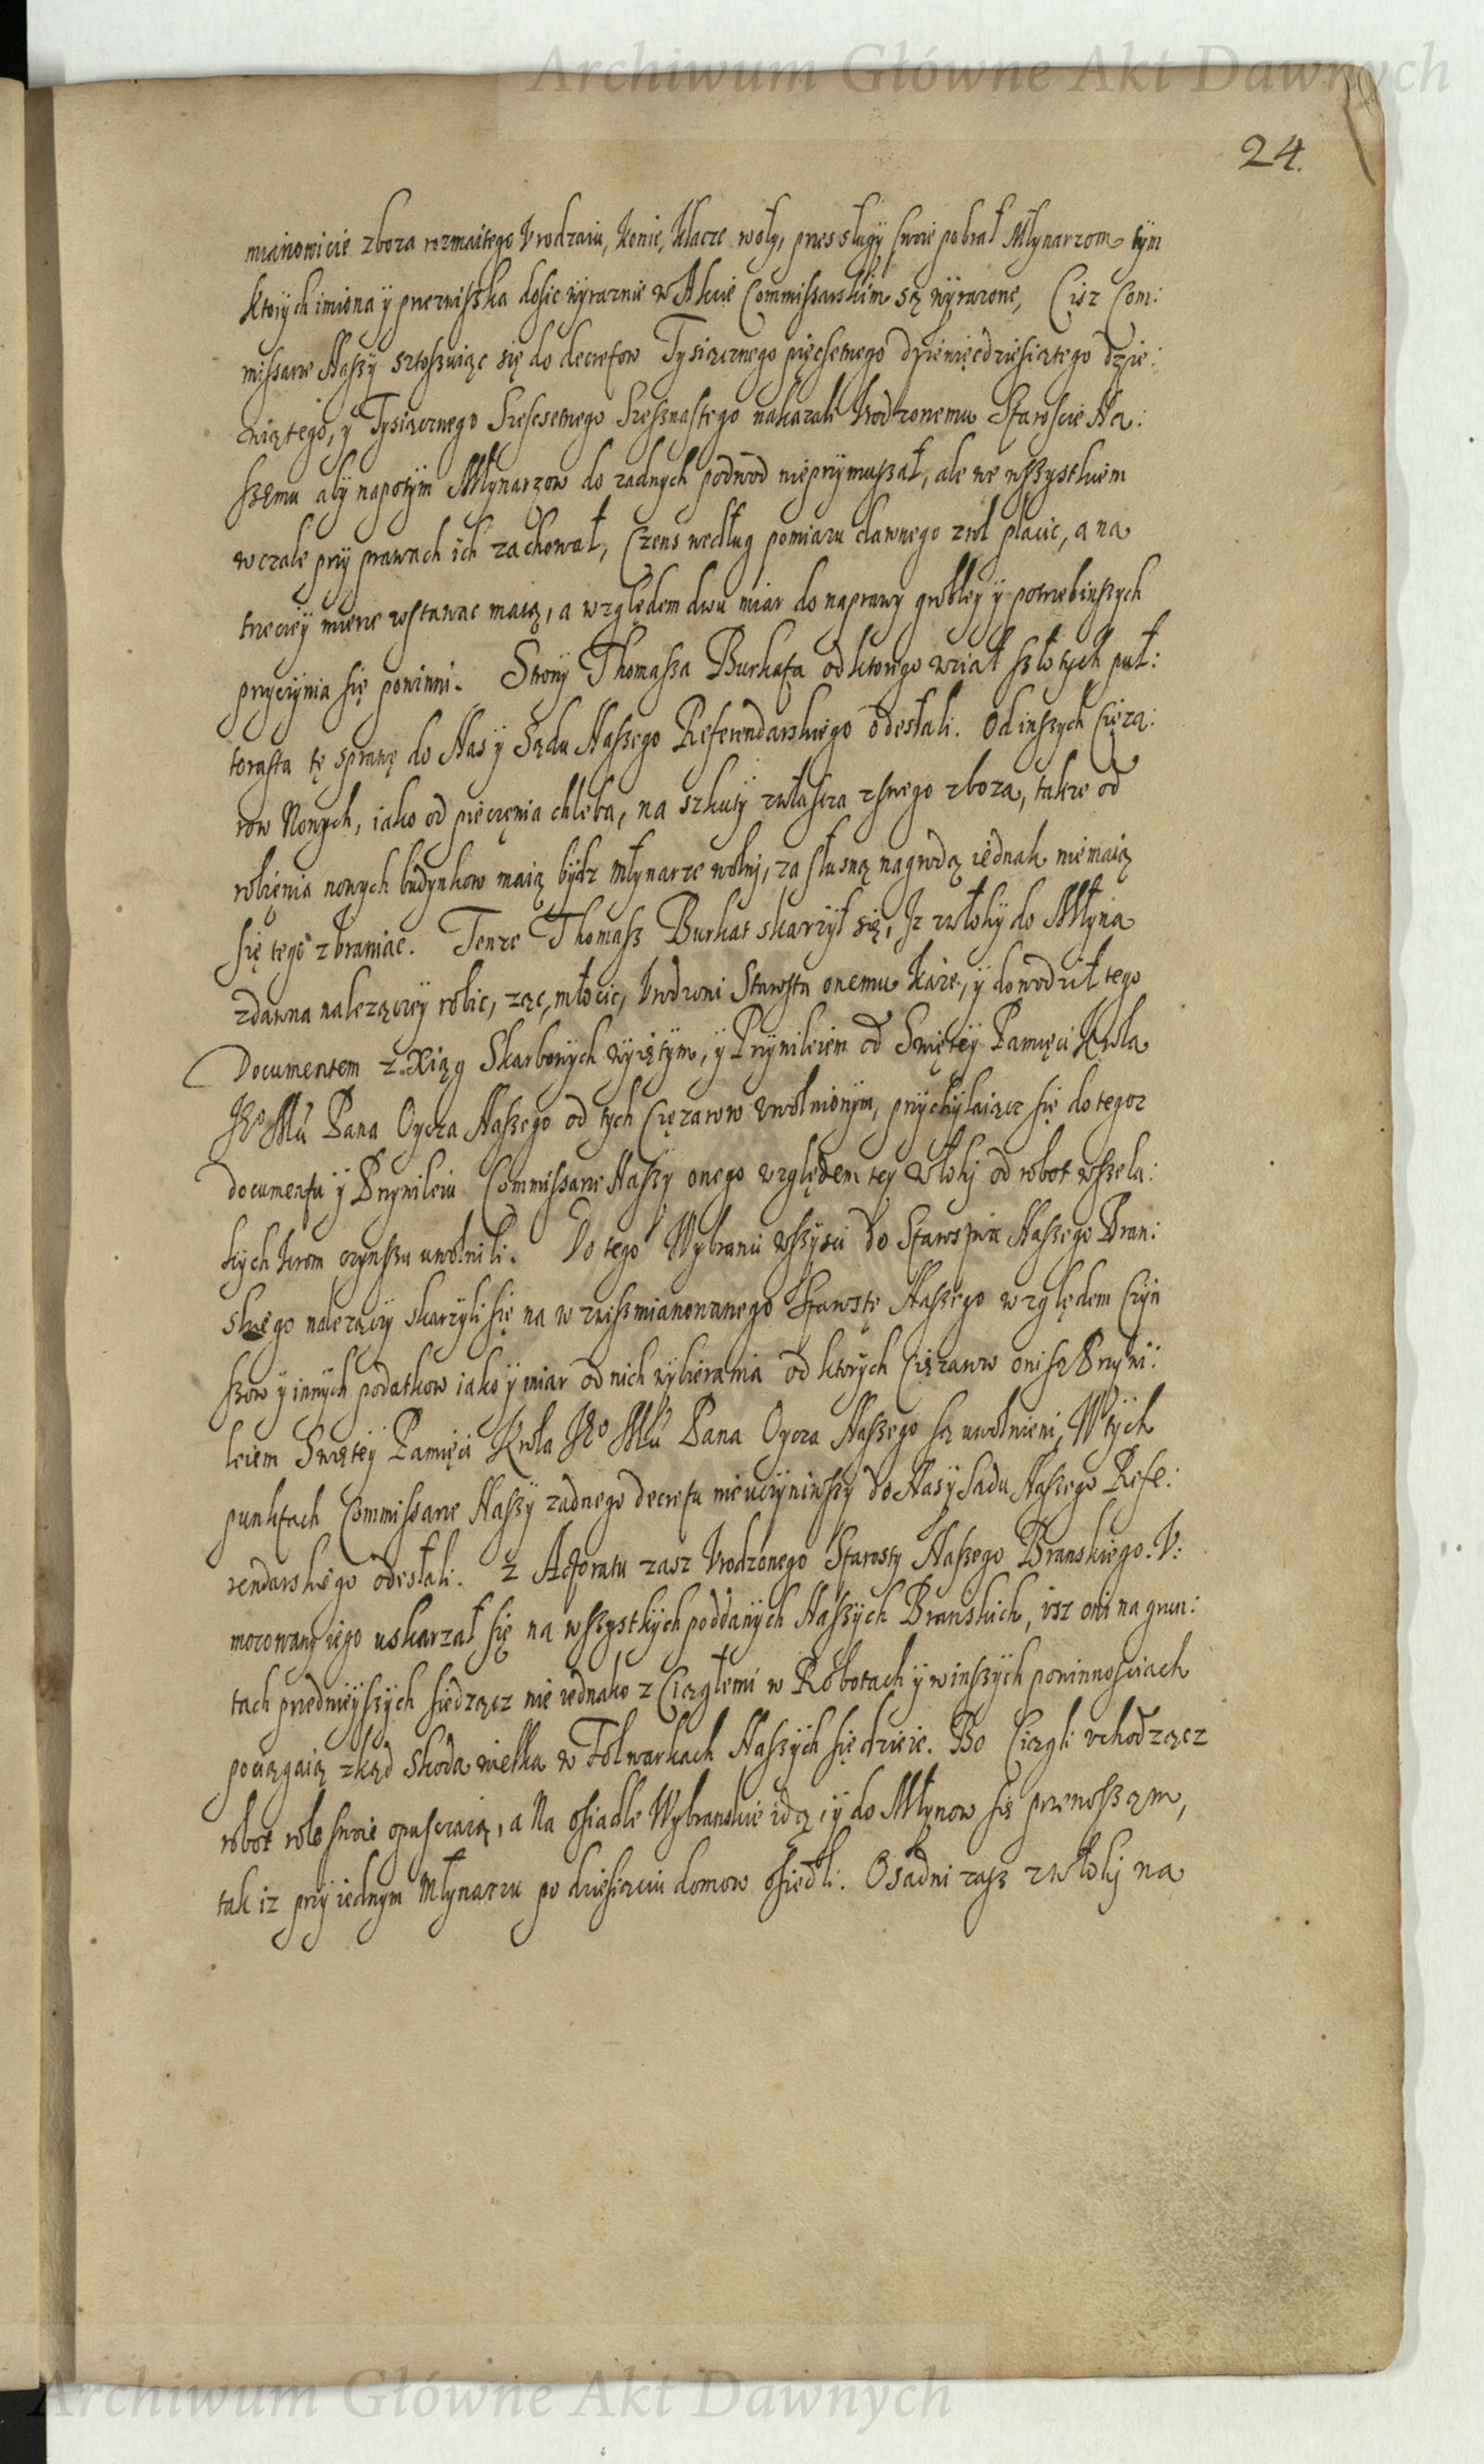 Archiwum Główne Akt Dawnych
24.
mianowicie zboza rozmaitego Vrodzaiu, konie, klacze woły, przes sługy swoie pobrał Młynarzom tym
ktorych imiona y przezwiszka dosic wyraznie w Akcie Commissarskim są wyrazone, Ciz Com:
missarze Naszy sztoszuiąc się do decretow Tysiącznego pięcsetnego dziewięcdziesiątego dzie:
wiątego, y Tysiącznego Szescsetnego Szesznastego nakazali Vrodzonemu Staroscie Na:
szemu aby napotym Młynarzow do zadnych podwod nieprzymuszał, ale we wszystkiem
wczale przy prawach ich zachował, Czens według pomiaru dawnego z rol płacic, a na
trzeciey mierze zostawac maią, a względem dwu miar do naprawy grobley y potrzebinszych
przyczynia się powinni. Strony Thomasza Burkata od ktorego wziął szłotych puł:
torasta tę sprawę do Nas y Sądu Naszego Referendarskiego odesłali. Od inszych Cięza:
row Nowych, iako od pieczęnia chleba, na szkuty zwłascza zswego zboza, takze od
robięnia nowych budynkow maią bydz młynarze wolni, za słusną nagrodą iednak nie maią
się tego zbraniac. Tenze Thomasz Burkat skarzył się, Iz z włoky do Młyna
zdawna nalezączey robic, ząc, młocic, Vrodzoni Starosta onemu kaze, y dowodził tego
Documentem z Xiąg Skarbowych wyiętym, y Przywileiem od Swiętey Pamięci Krola
Je° Mci Pana Oycza Naszego od tych Cięzarow vwolnionym, przychylaiącz się do tegoz
documentu y Przywileiu Commissarze Naszy onego względem tey Włoki od robot wszela:
kych krom czynszu uwolnili. Do tego Wybrancy wszysci do Starostwa Naszego Bran:
skiego nalezączy skarzyli się na w zwiszmianowanego Starostę Naszego względem Czyn
szow y innych podatkow iako y miar od nich wybierania od ktorych Cięzarow oni sz Przywi:
leiem Swiętey Pamięci Krola Je° Mci Pana Oycza Naszego są uwolnieni, W tych
punktach Commissarze Naszy zadnego decretu nieuczyniwszy do Nas y Sądu Naszego Refe:
rendarskiego odesłali. Z Actoratu zasz Vrodzonego Starosty Naszego Branskiego. V:
mocowany iego uskarzał się na wszystkych poddanych Naszych Branskich, isz oni na grun:
tach przednieyszych siedząz nie iednako z Ciągłemi w Robotach y winszych powinnosciach
pociągaią zkąd Skoda wielka w Folwarkach Naszych się dzieie. Bo Ciągli vchodzącz
robot role swoie opusczaią, a Na osiadłe Wybranskie idą, y do Młynow się przenoszam,
tak iz przy iednym Młynarzu po dziesięciu domow osiedli. Osadni zasz z włoki na
Archiwum Główne Akt Dawnych